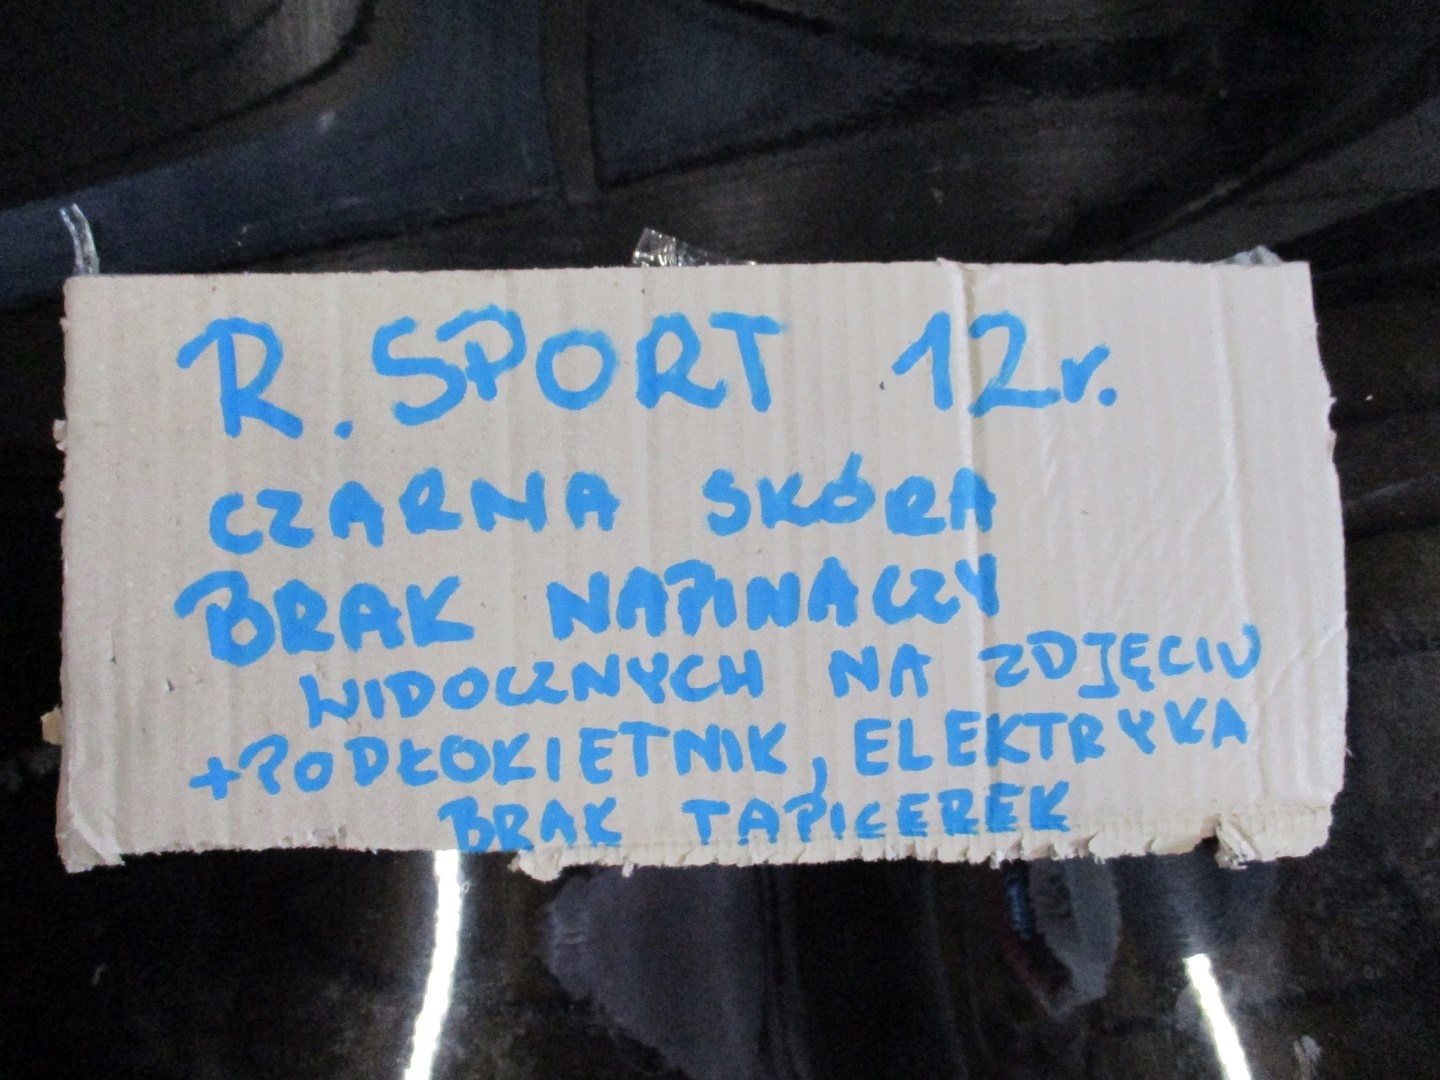 R. SPORT 12r.
CZARNA SKÓRA
BRAK NAPINACZY
WIDOCZNYCH NA ZDJĘCIU
+PODŁOKIETNIK, ELEKTRYKA
BRAK TAPICEREK